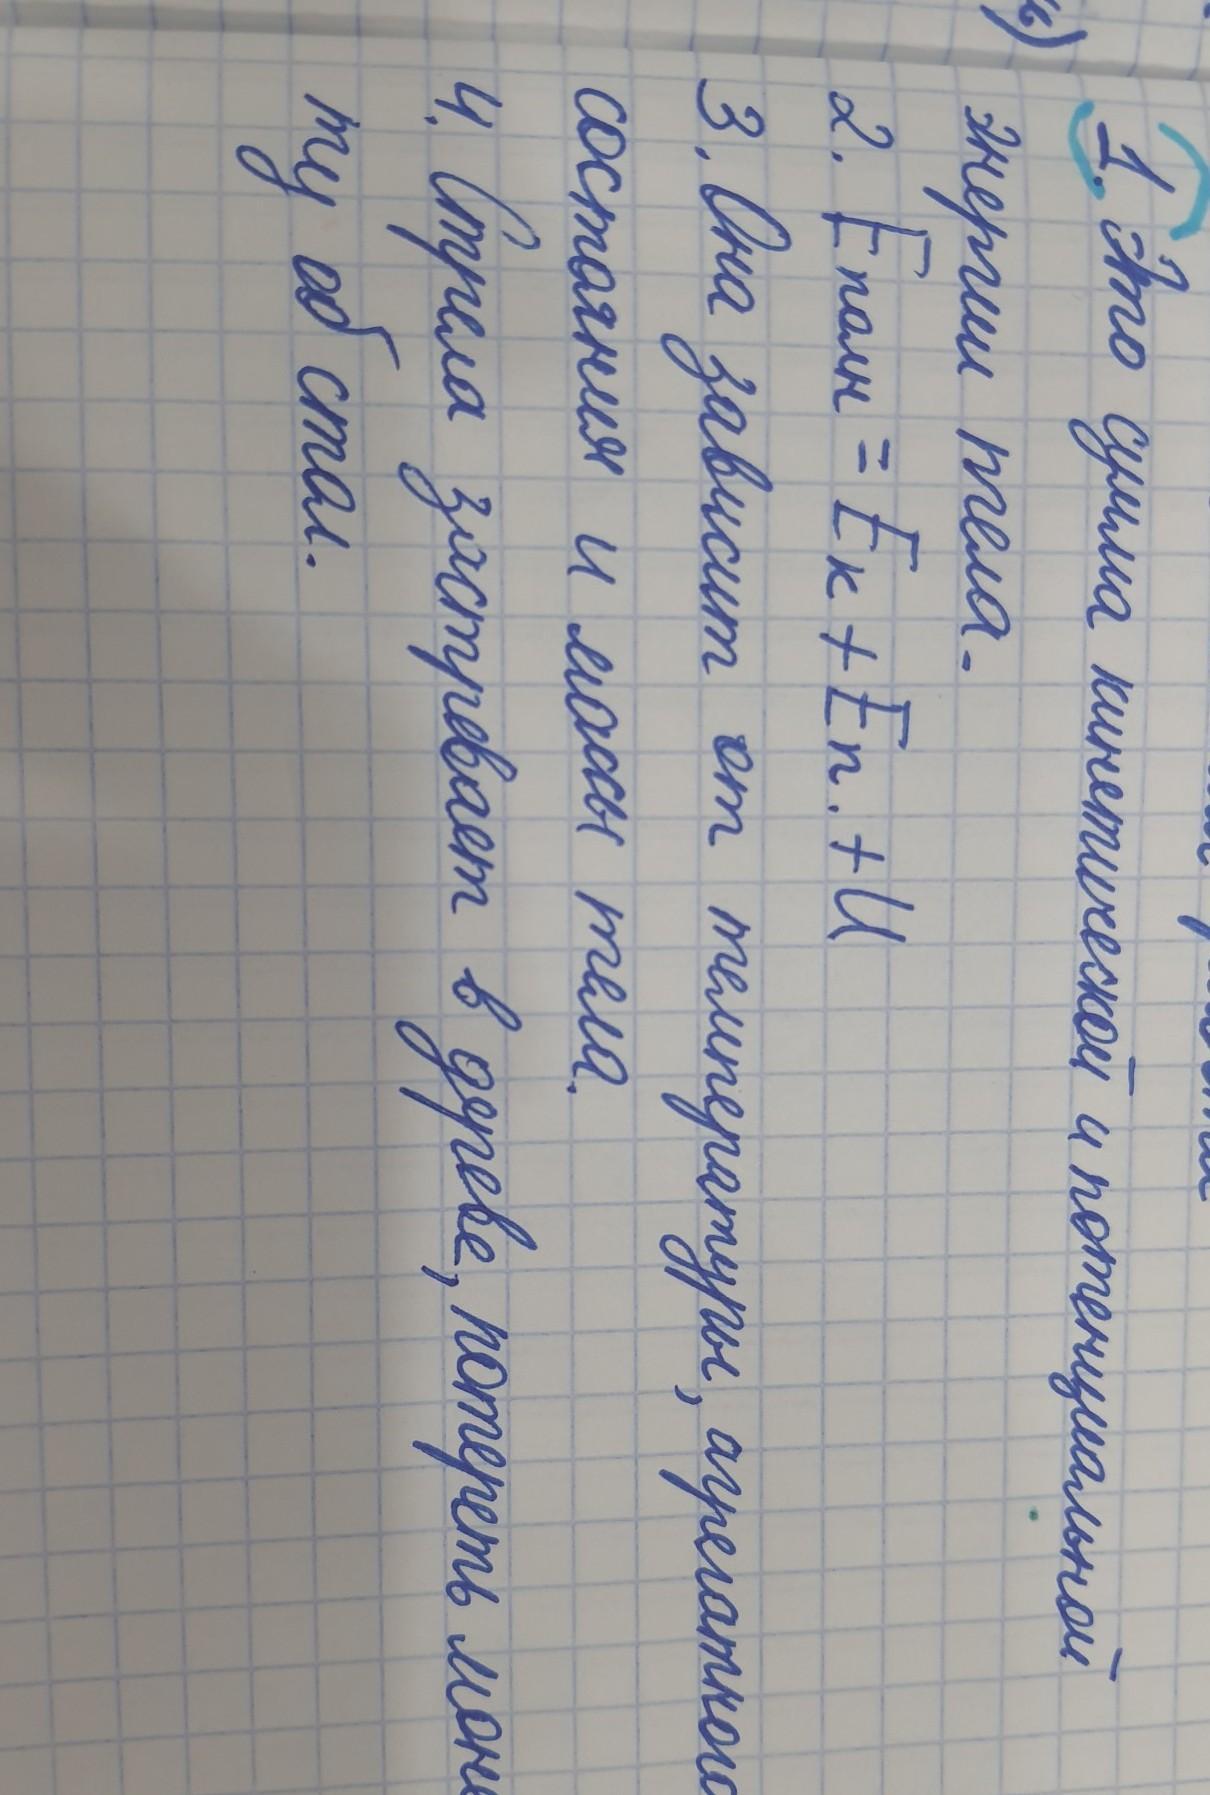 1. Это сумма кинетической и потенциальной
энергии тела.
2. Eполн = Eк + Eп. + U
3. Она зависит от температуры, агрегатного
состояния и массы тела.
4. Стрела застревает в древе, потереть моне
ту об стол.